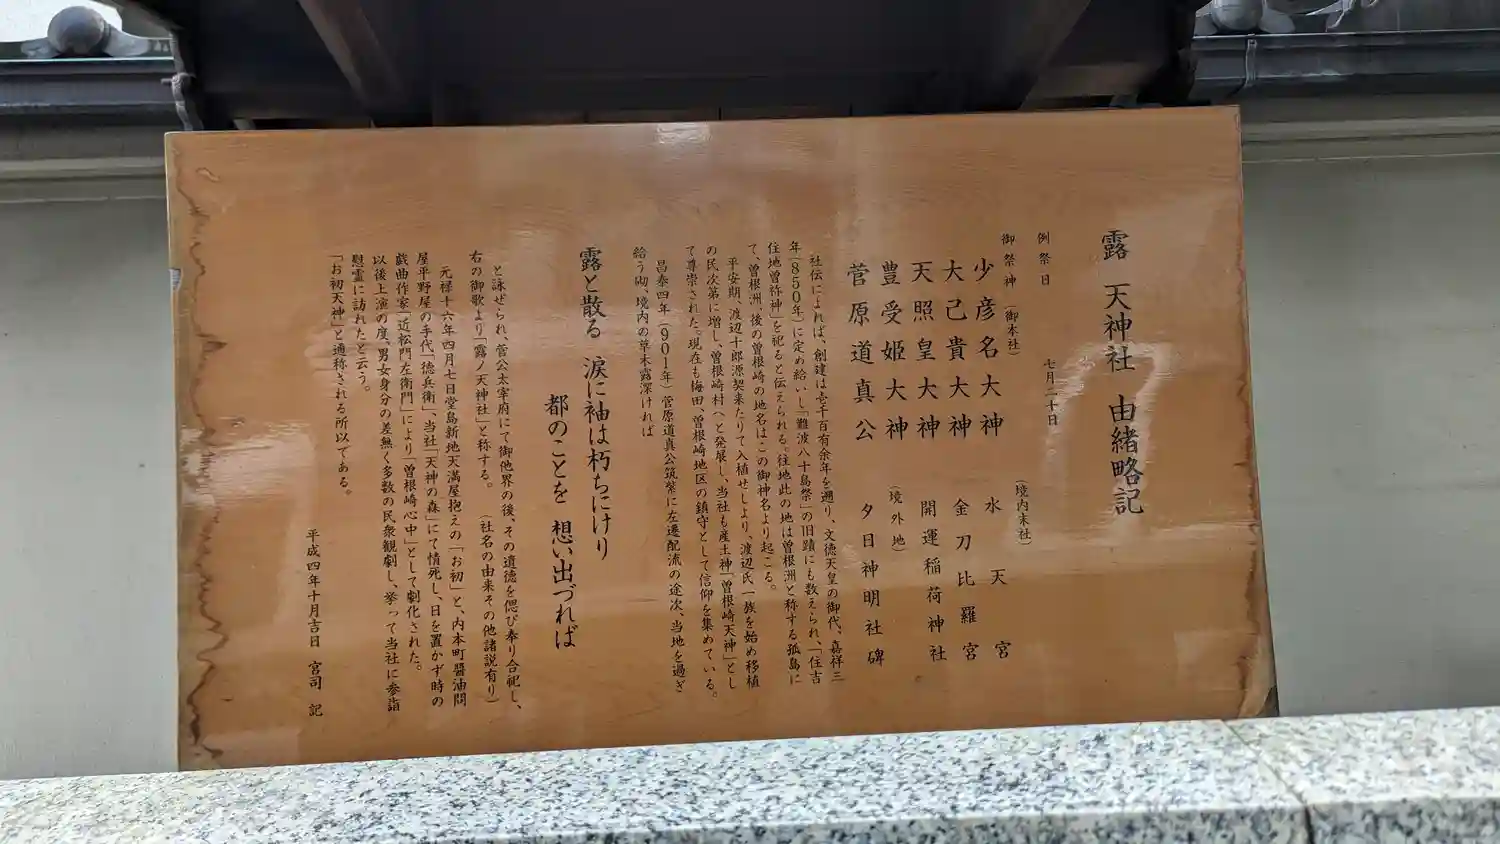 露 天神社 由緒略記
例祭日 七月二十日
御祭神 (御本社)
少彦名大神
大己貴大神
天照皇大神
豊受姫大神
菅原道真公
(境内末社)
水天宮
金刀比羅宮
開運稲荷神社
(境外地)
夕日神明社碑
社伝によれば、創建は壱千百有余年を遡り、文徳天皇の御代、嘉祥三
年(850年)に定め給いし「難波八十島祭」の旧蹟にも数えられ、「住吉
住地曽祢神」を祀ると伝えられる。往地此の地は曽根洲と称する孤島に
て、曽根洲、後の曽根崎の地名はこの御神名より起こる。
平安期、渡辺十郎源契来たりて入植せしより、渡辺氏一族を始め移植
の民次第に増し、曽根崎村へと発展し、当社も産土神「曽根崎天神」とし
て尊崇された。現在も梅田、曽根崎地区の鎮守として信仰を集めている。
昌泰四年(901年)菅原道真公筑紫に左遷配流の途次、当地を過ぎ
給う砌、境内の草木露深ければ
露と散る 涙に袖は朽ちにけり
都のことを 想い出づれば
と詠ぜられ、菅公太宰府にて御他界の後、その遺徳を偲び奉り合祀し、
右の御歌より「露ノ天神社」と称する。 (社名の由来その他諸説有り)
元禄十六年四月七日堂島新地天満屋抱えの「お初」と、内本町醬油問
屋平野屋の手代「徳兵衛」、当社「天神の森」にて情死し、日を置かず時の
戯曲作家「近松門左衛門」により「曽根崎心中」として劇化された。
以後上演の度、男女身分の差無く多数の民衆観劇し、挙って当社に参詣
慰霊に訪れたと云う。
「お初天神」と通称される所以である。
平成四年十月吉日 宮司 記